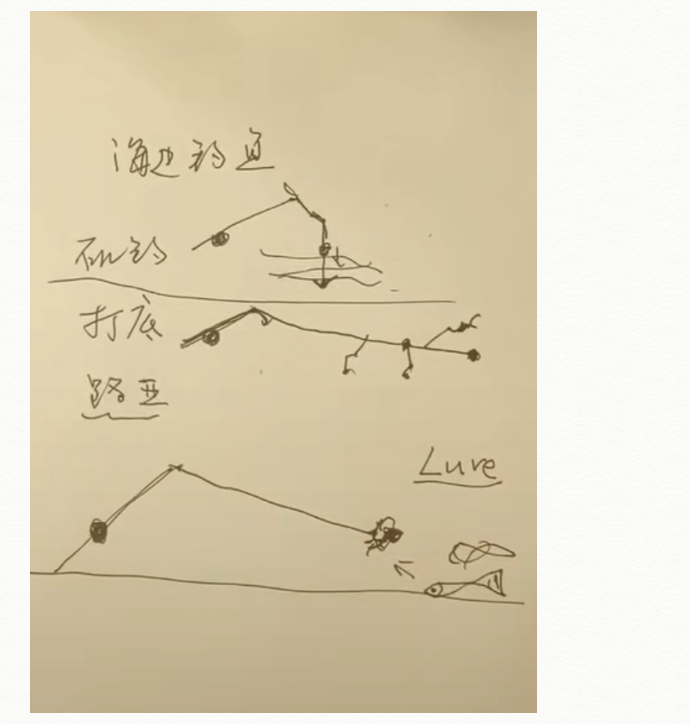 海边钓鱼
矶钓
打底
路亚
Lure